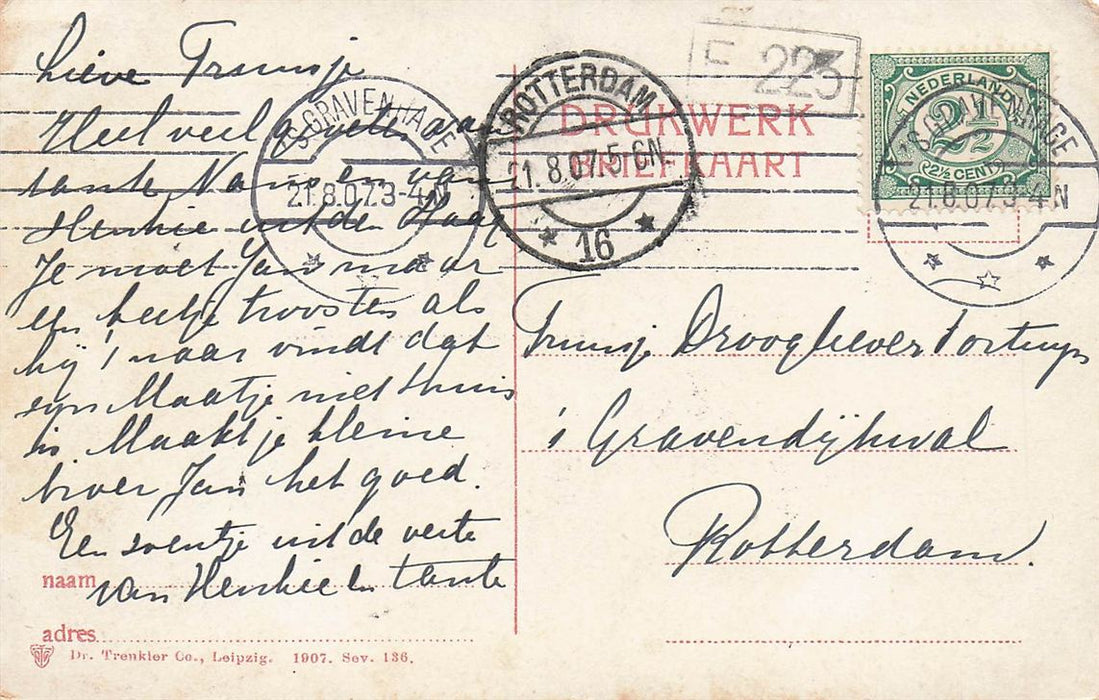 Lieve Truusje
Heel veel
tante
Henkie uit den Haag
Je moet Jan maar
een beetje troosten als
hij 't naar vindt dat
zijn Maatje niet thuis
is. Maakt je kleine
broer Jan het goed.
Een zoentje uit de verte
van Henkie en tante
naam
adres
Dr. Trenkler Co., Leipzig. 1907. Sev. 136.
'S GRAVENHAGE
21.8.07.3-4N
ROTTERDAM
21.8.07.5-6N.
16
F 223
DRUKWERK
BRIEFKAART
NEDERLAND
2½
2½ CENT
'S GRAVENHAGE
21.8.07.3-4N
Truusje Droogleever Fortuyn
's Gravendijkwal
Rotterdam.